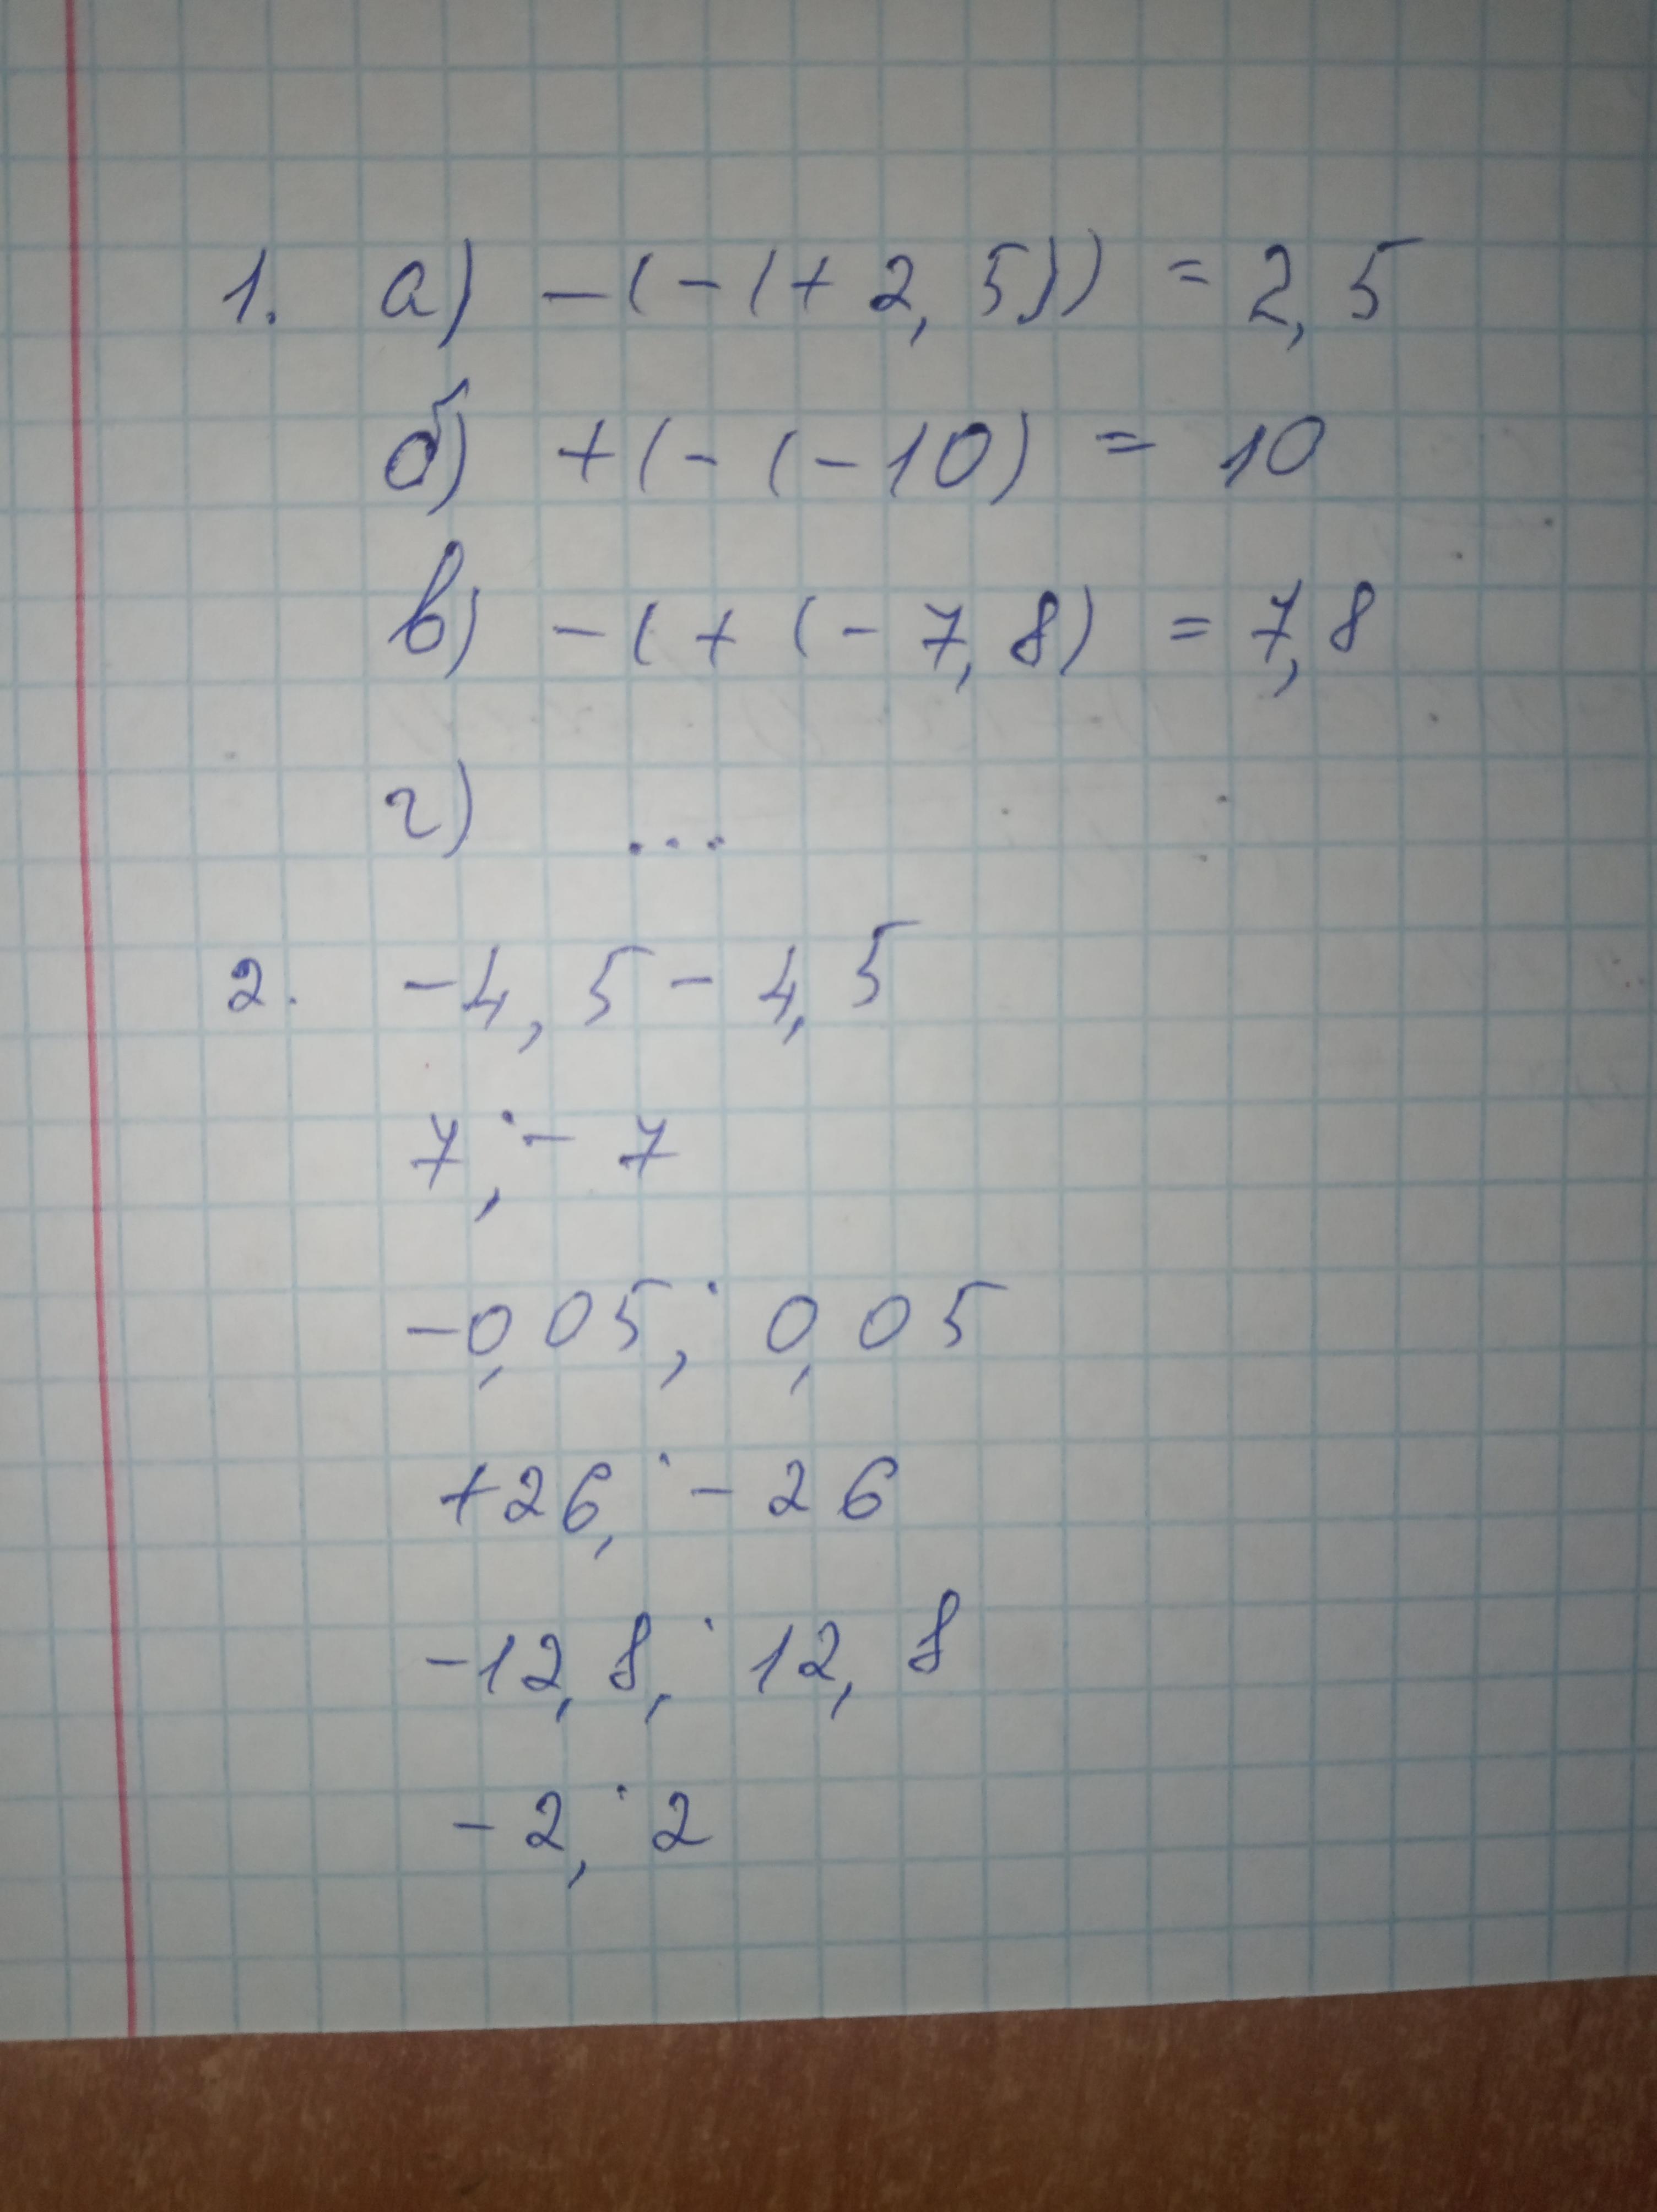 1. а) -(-(+2,5)) = 2,5
б) +(-(-10) = 10
в) -(+(-7,8) = 7,8
г) ...
2. -4,5 - 4,5
7; -7
-0,05; 0,05
+26; -26
-12,8; 12,8
-2; 2